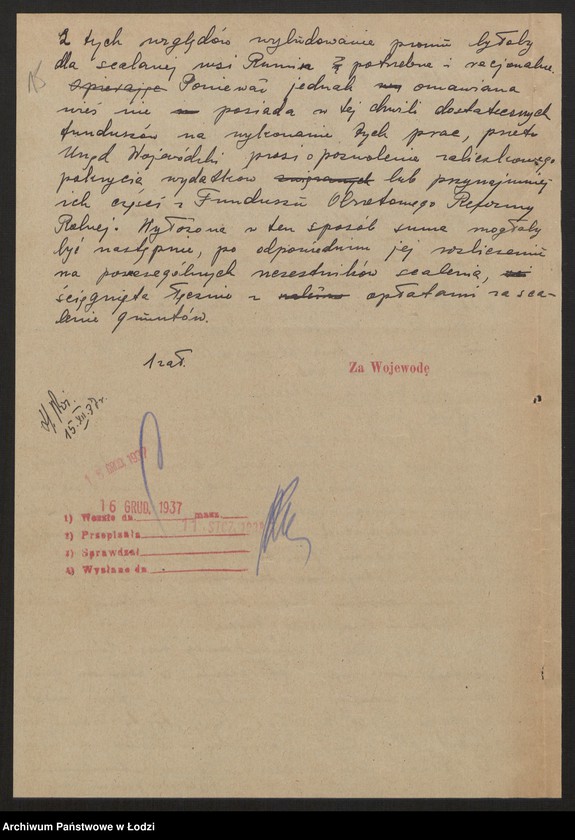 Z tych względów wybudowanie promu byłoby
dla scalanej wsi Rumin potrzebne i racjonalne.
Opierając Ponieważ jednak omawiana
wieś nie posiada w tej chwili dostatecznych
funduszów na wykonanie tych prac, przeto
Urząd Wojewódzki prosi o pozwolenie zaliczkowego
pokrycia wydatków związanych lub przynajmniej
ich części z Funduszu Obrotowego Reformy
Rolnej. Wyłożona w ten sposób suma mogłaby
być następnie, po odpowiednim jej rozliczeniu
na poszczególnych uczestników scalenia,
ściągnięta łącznie z opłatami za sca-
lenie gruntów.
1 zał.
Za Wojewodę
15.XII.37 r.
15
15 GRUD. 1937
16 GRUD. 1937
1) Weszło do masz.
11 STCZ. 1938
2) Przepisała
3) Sprawdzał
4) Wysłane do
Archiwum Państwowe w Łodzi